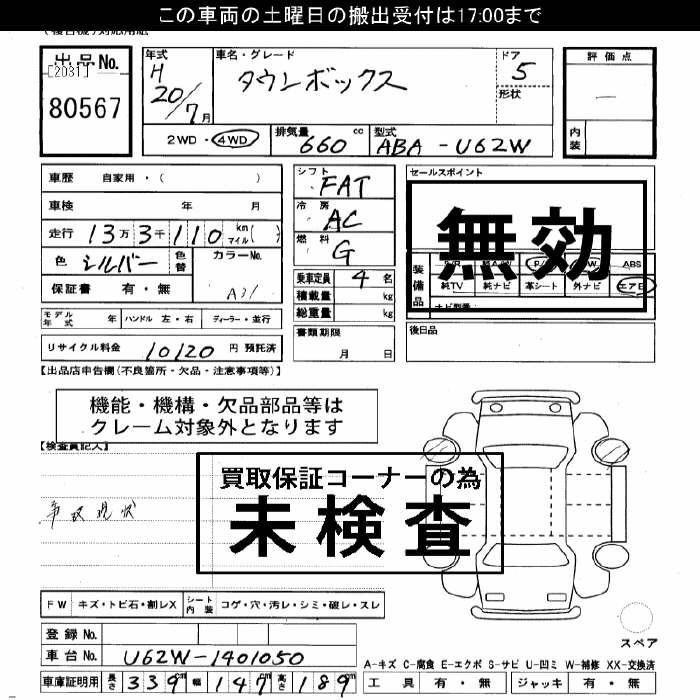 この車両の土曜日の搬出受付は17:00まで
出品No.
[2031]
80567
年式
H
20/7月
車名・グレード
タウンボックス
ドア
5
形状
評価点
内装
2WD・4WD
排気量
660 cc
型式
ABA-U62W
車歴 自家用・( )
車検 年 月
走行 13万3千110 km マイル( )
色 シルバー
色替
カラーNo.
A31
保証書 有・無
シフト
FAT
冷房
AC
燃料
G
乗車定員 4名
積載量 kg
総重量 kg
セールスポイント
無効
装備品
ABS
純TV 純ナビ 革シート 外ナビ エアB
モデル年式 年 ハンドル 左・右 ディーラー・並行
書類期限
月 日
後日品
リサイクル料金 10120 円 預託済
【出品店申告欄(不良箇所・欠品・注意事項等)】
機能・機構・欠品部品等は
クレーム対象外となります
【検査員記入】
買取保証コーナーの為
未検査
事故現状
FW キズ・トビ石・割レX シート内装 コゲ・穴・汚レ・シミ・破レ・スレ
登録No.
車台No. U62W-1401050
スペア
A-キズ C-腐食 E-エクボ S-サビ U-凹ミ W-補修 XX-交換済
車庫証明用 長さ 339m 幅 147m 高さ 189m
工具 有・無 ジャッキ 有・無